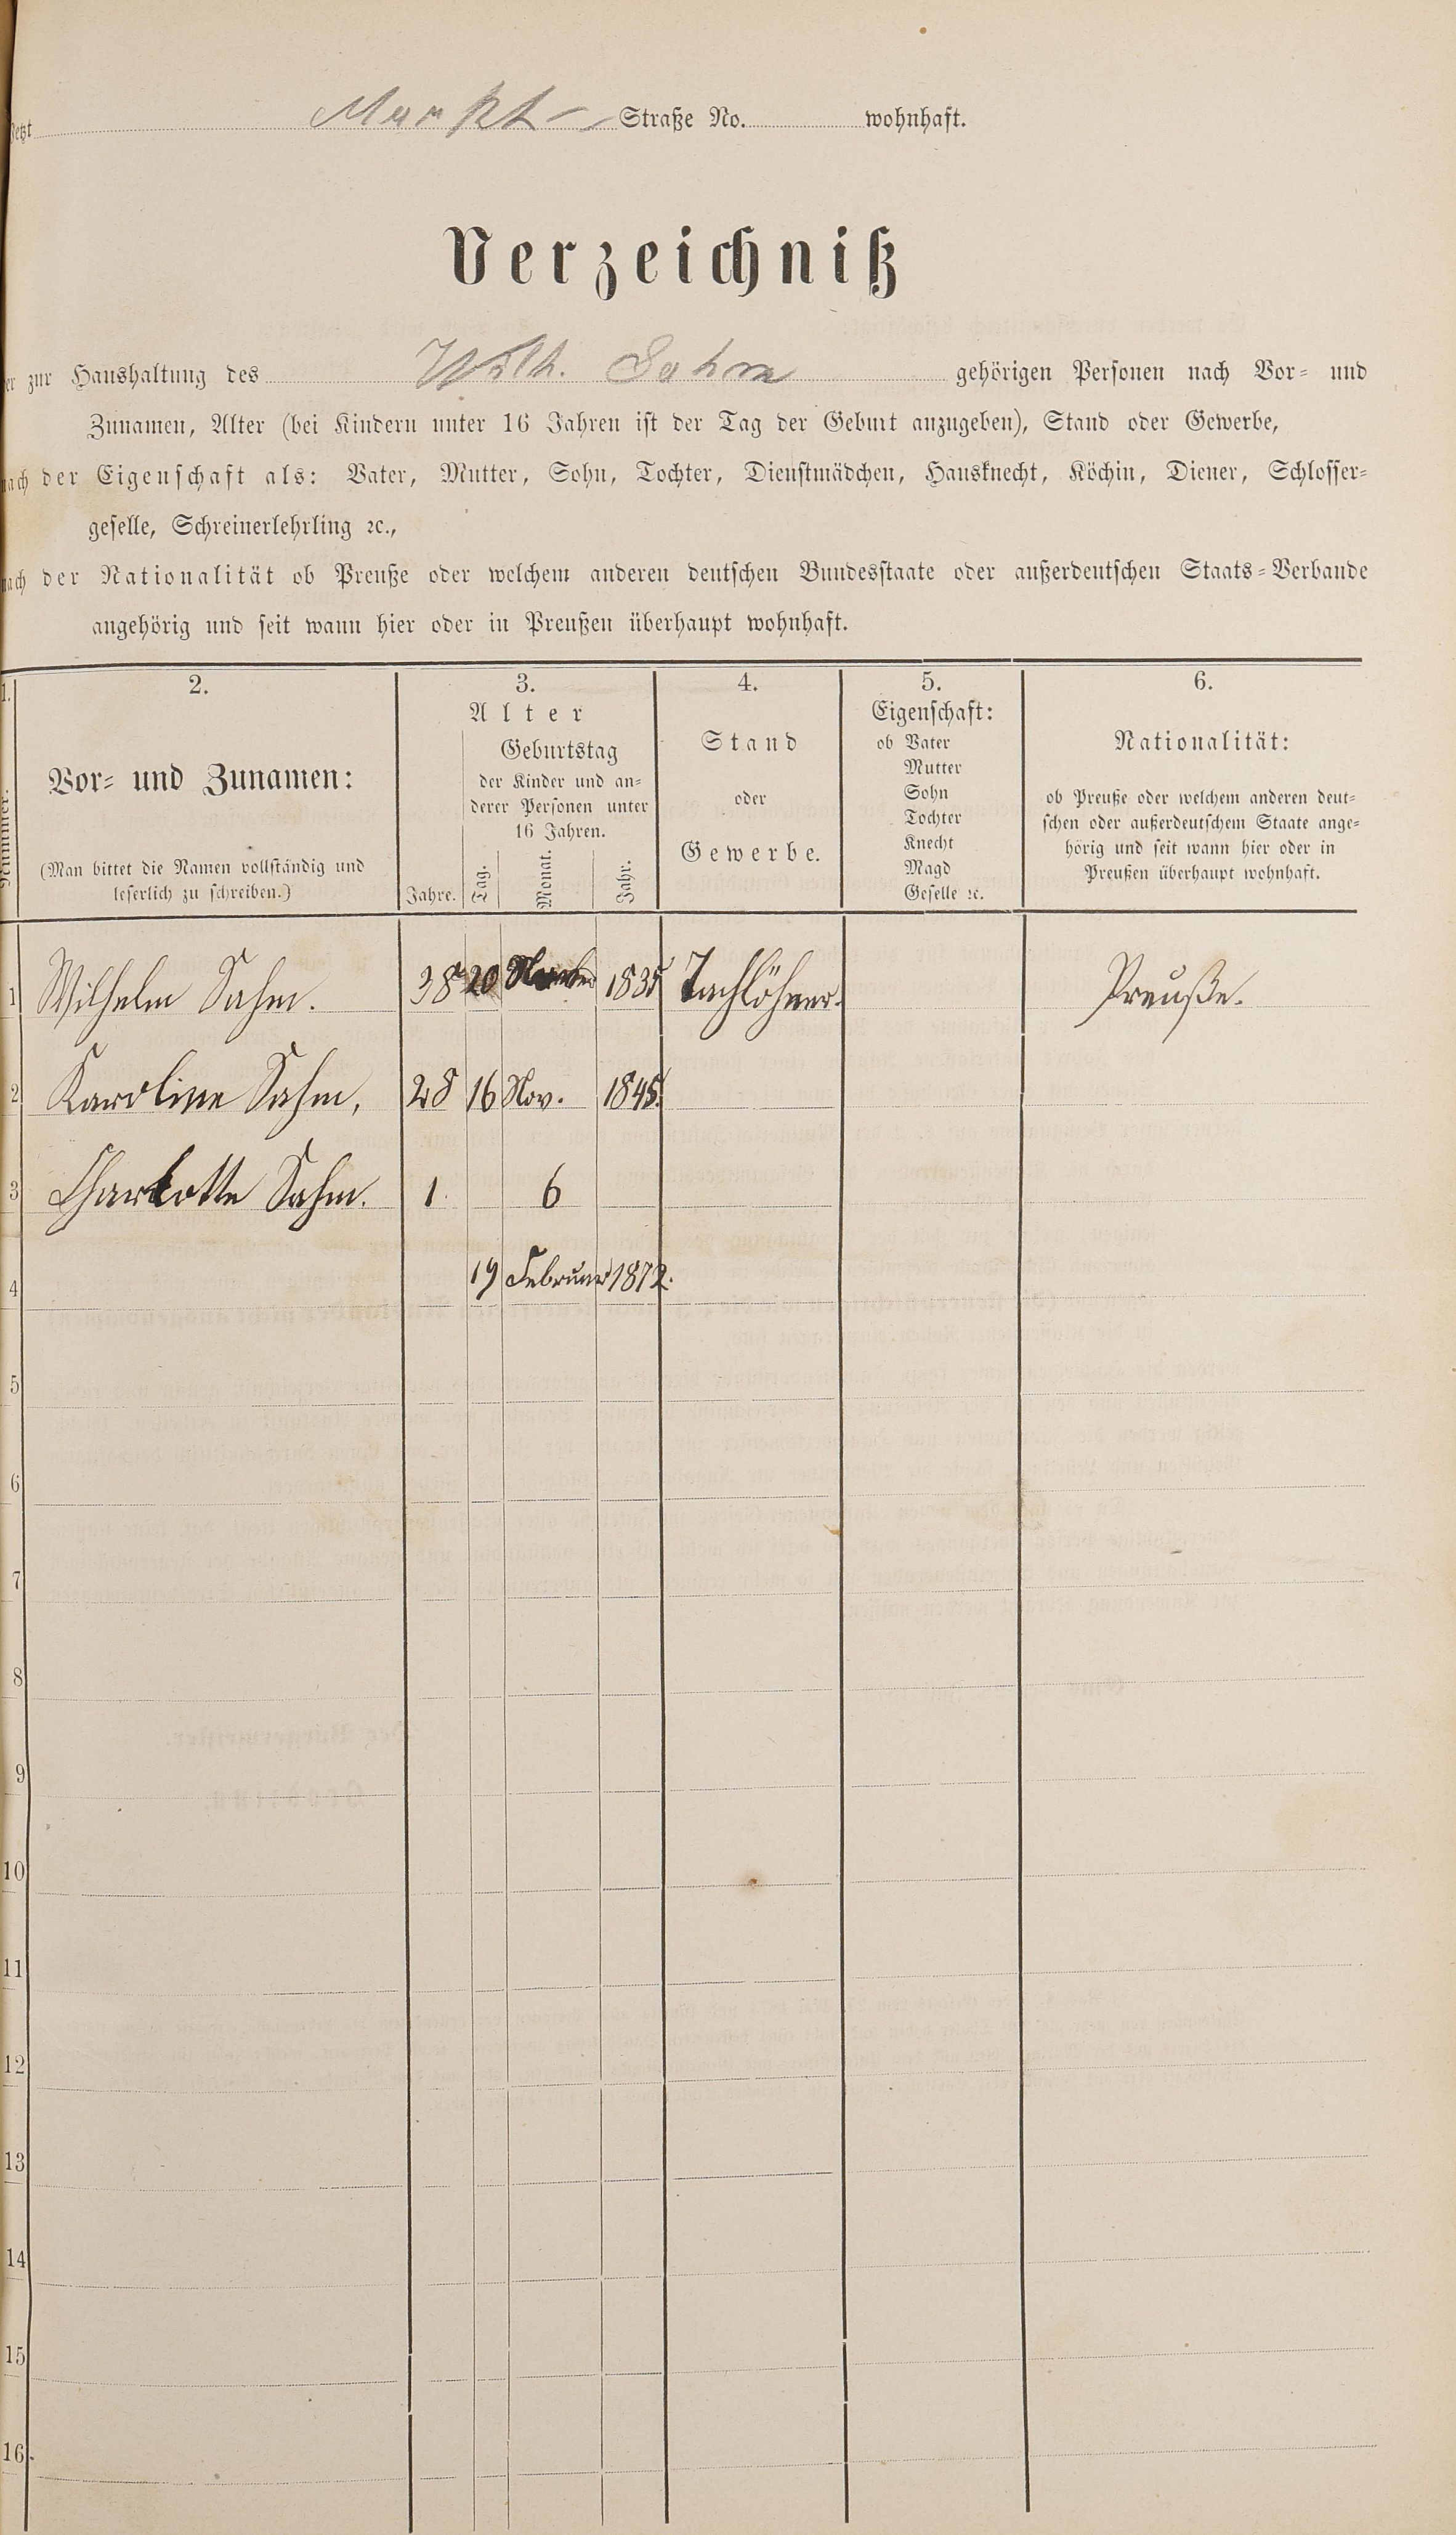 Jetzt Markt- Straße No. wohnhaft.
Verzeichniß
der zur Haushaltung des Wilh. Sahm gehörigen Personen nach Vor- und
Zunamen, Alter (bei Kindern unter 16 Jahren ist der Tag der Geburt anzugeben), Stand oder Gewerbe,
nach der Eigenschaft als: Vater, Mutter, Sohn, Tochter, Dienstmädchen, Hausknecht, Köchin, Diener, Schlosser-
geselle, Schreinerlehrling ꝛc.,
nach der Nationalität ob Preuße oder welchem anderen deutschen Bundesstaate oder außerdeutschen Staats-Verbande
angehörig und seit wann hier oder in Preußen überhaupt wohnhaft.
1. 2. 3. 4. 5. 6.
Nummer.
Vor- und Zunamen:
(Man bittet die Namen vollständig und
leserlich zu schreiben.)
Alter
Jahre.
Geburtstag
der Kinder und an-
derer Personen unter
16 Jahren.
Tag. Monat. Jahr.
Stand
oder
Gewerbe.
Eigenschaft:
ob Vater
Mutter
Sohn
Tochter
Knecht
Magd
Geselle ꝛc.
Nationalität:
ob Preuße oder welchem anderen deut-
schen oder außerdeutschem Staate ange-
hörig und seit wann hier oder in
Preußen überhaupt wohnhaft.
1 Wilhelm Sahm. 38 20 1835 Tachlöhner. Preuße.
2 Karoline Sahm, 28 16 Nov. 1845.
3 Charlotte Sahm. 1. 6
4 19 Februar 1872.
5
6
7
8
9
10
11
12
13
14
15
16